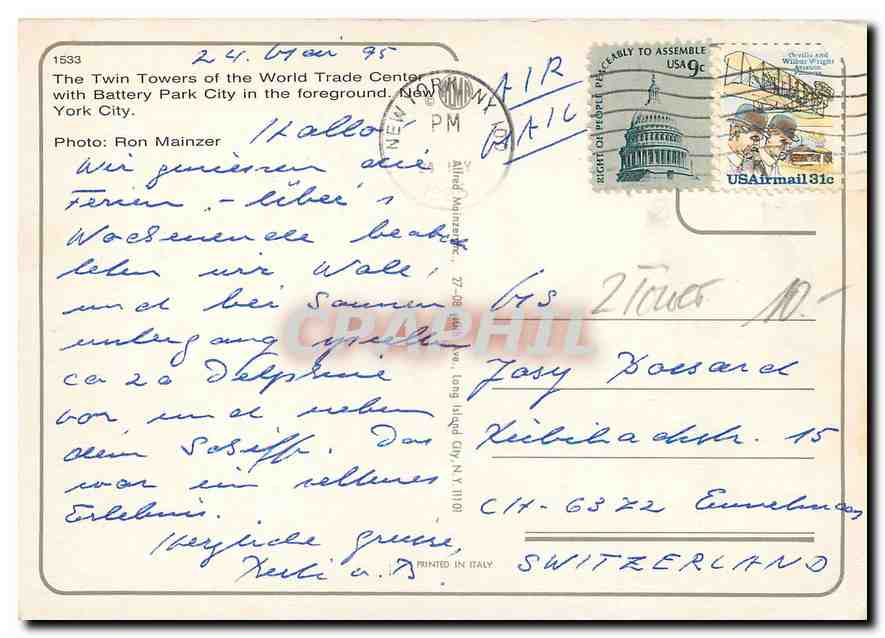 1533
24. Mai 95
The Twin Towers of the World Trade Center
with Battery Park City in the foreground. New
York City.
Photo: Ron Mainzer
Hallo!
Wir geniessen die
Ferien - über's
Wochenende beobach
teten wir Wale,
und bei Sonnen
untergang spielten
ca 20 Delphine
vor und neben
dem Schiff. Das
war ein seltenes
Erlebnis.
Herzliche Grüsse,
AIR
MAIL
NEW YORK NY 100
PM
RIGHT OF PEOPLE PEACEABLY TO ASSEMBLE
USA 9c
Orville and
Wilbur Wright
Aviation
Pioneers
USAirmail 31c
Alfred Mainzer Inc., 27-08 Ave., Long Island City, N.Y. 11101
2 Tower 10.-
CPAPHIL
Josy
15
CH-6372
SWITZERLAND
PRINTED IN ITALY